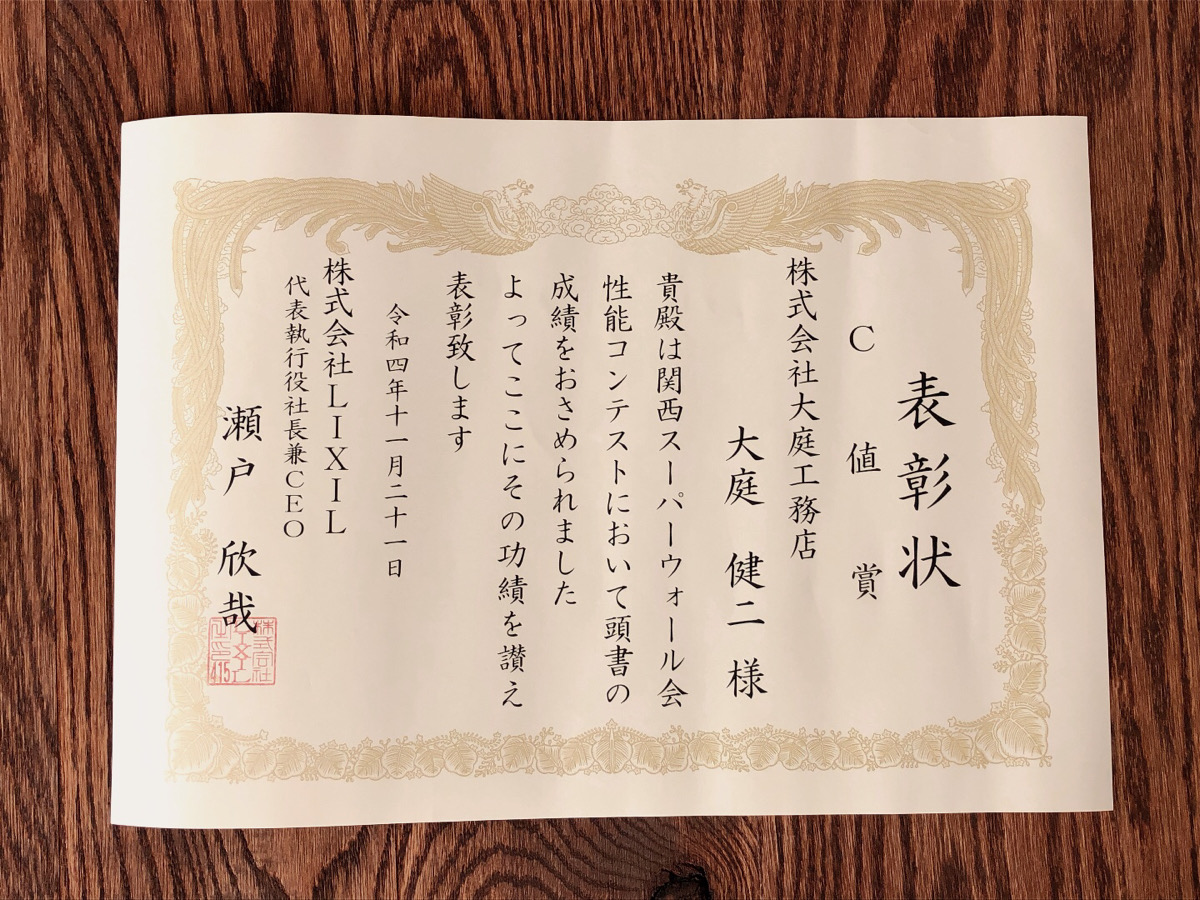 表彰状
C値賞
株式会社大庭工務店
大庭 健二 様
貴殿は関西スーパーウォール会
性能コンテストにおいて頭書の
成績をおさめられました
よってここにその功績を讃え
表彰致します
令和四年十一月二十一日
株式会社LIXIL
代表執行役社長兼CEO
瀬戸 欣哉
株式会社
415